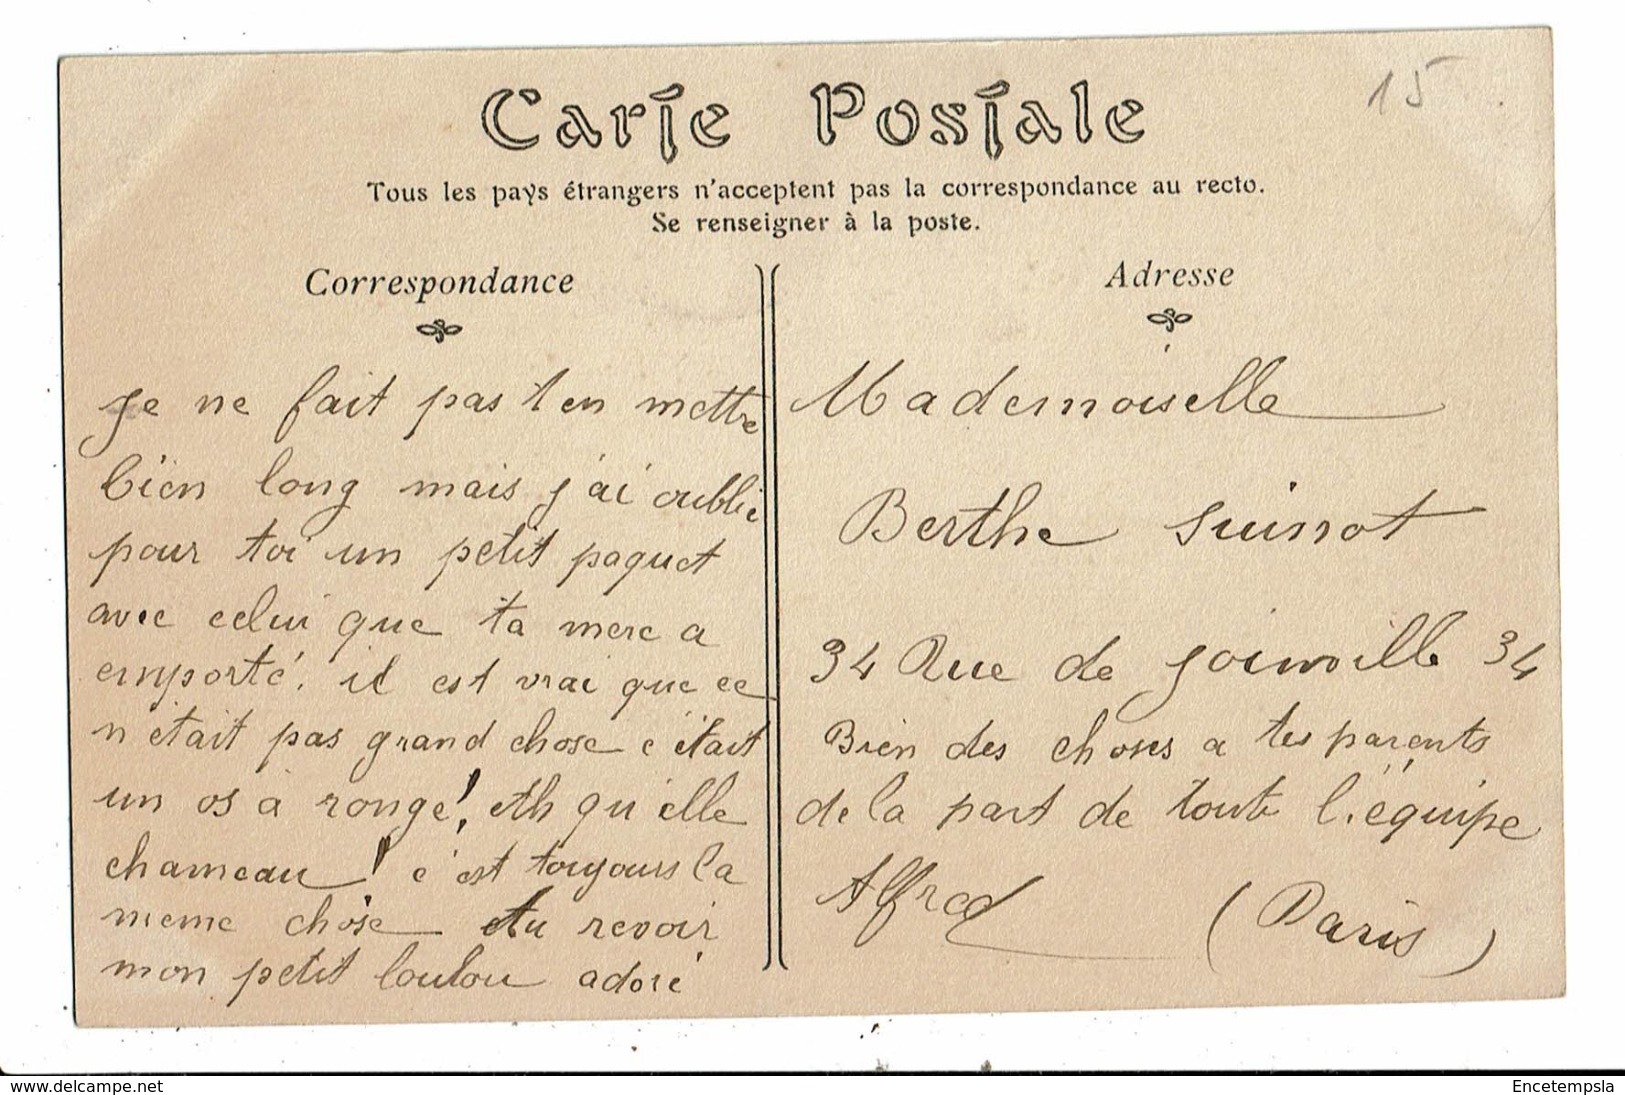 15
Carte Postale
Tous les pays étrangers n'acceptent pas la correspondance au recto.
Se renseigner à la poste.
Correspondance
Je ne fait pas t en mettre
bien long mais j'ai oublié
pour toi un petit paquet
avec celui que ta mere a
emporté. il est vrai que ce
n'était pas grand chose c'était
un os à rongé! Ah qu'elle
chameau! c'est toujours la
meme chose Au revoir
mon petit loulou adoré
Adresse
Mademoiselle
Berthe
34 Rue de Joinville 34
Bien des choses a tes parents
de la part de toute l'équipe
Alfred
(Paris)
www.delcampe.net
Encetempsla